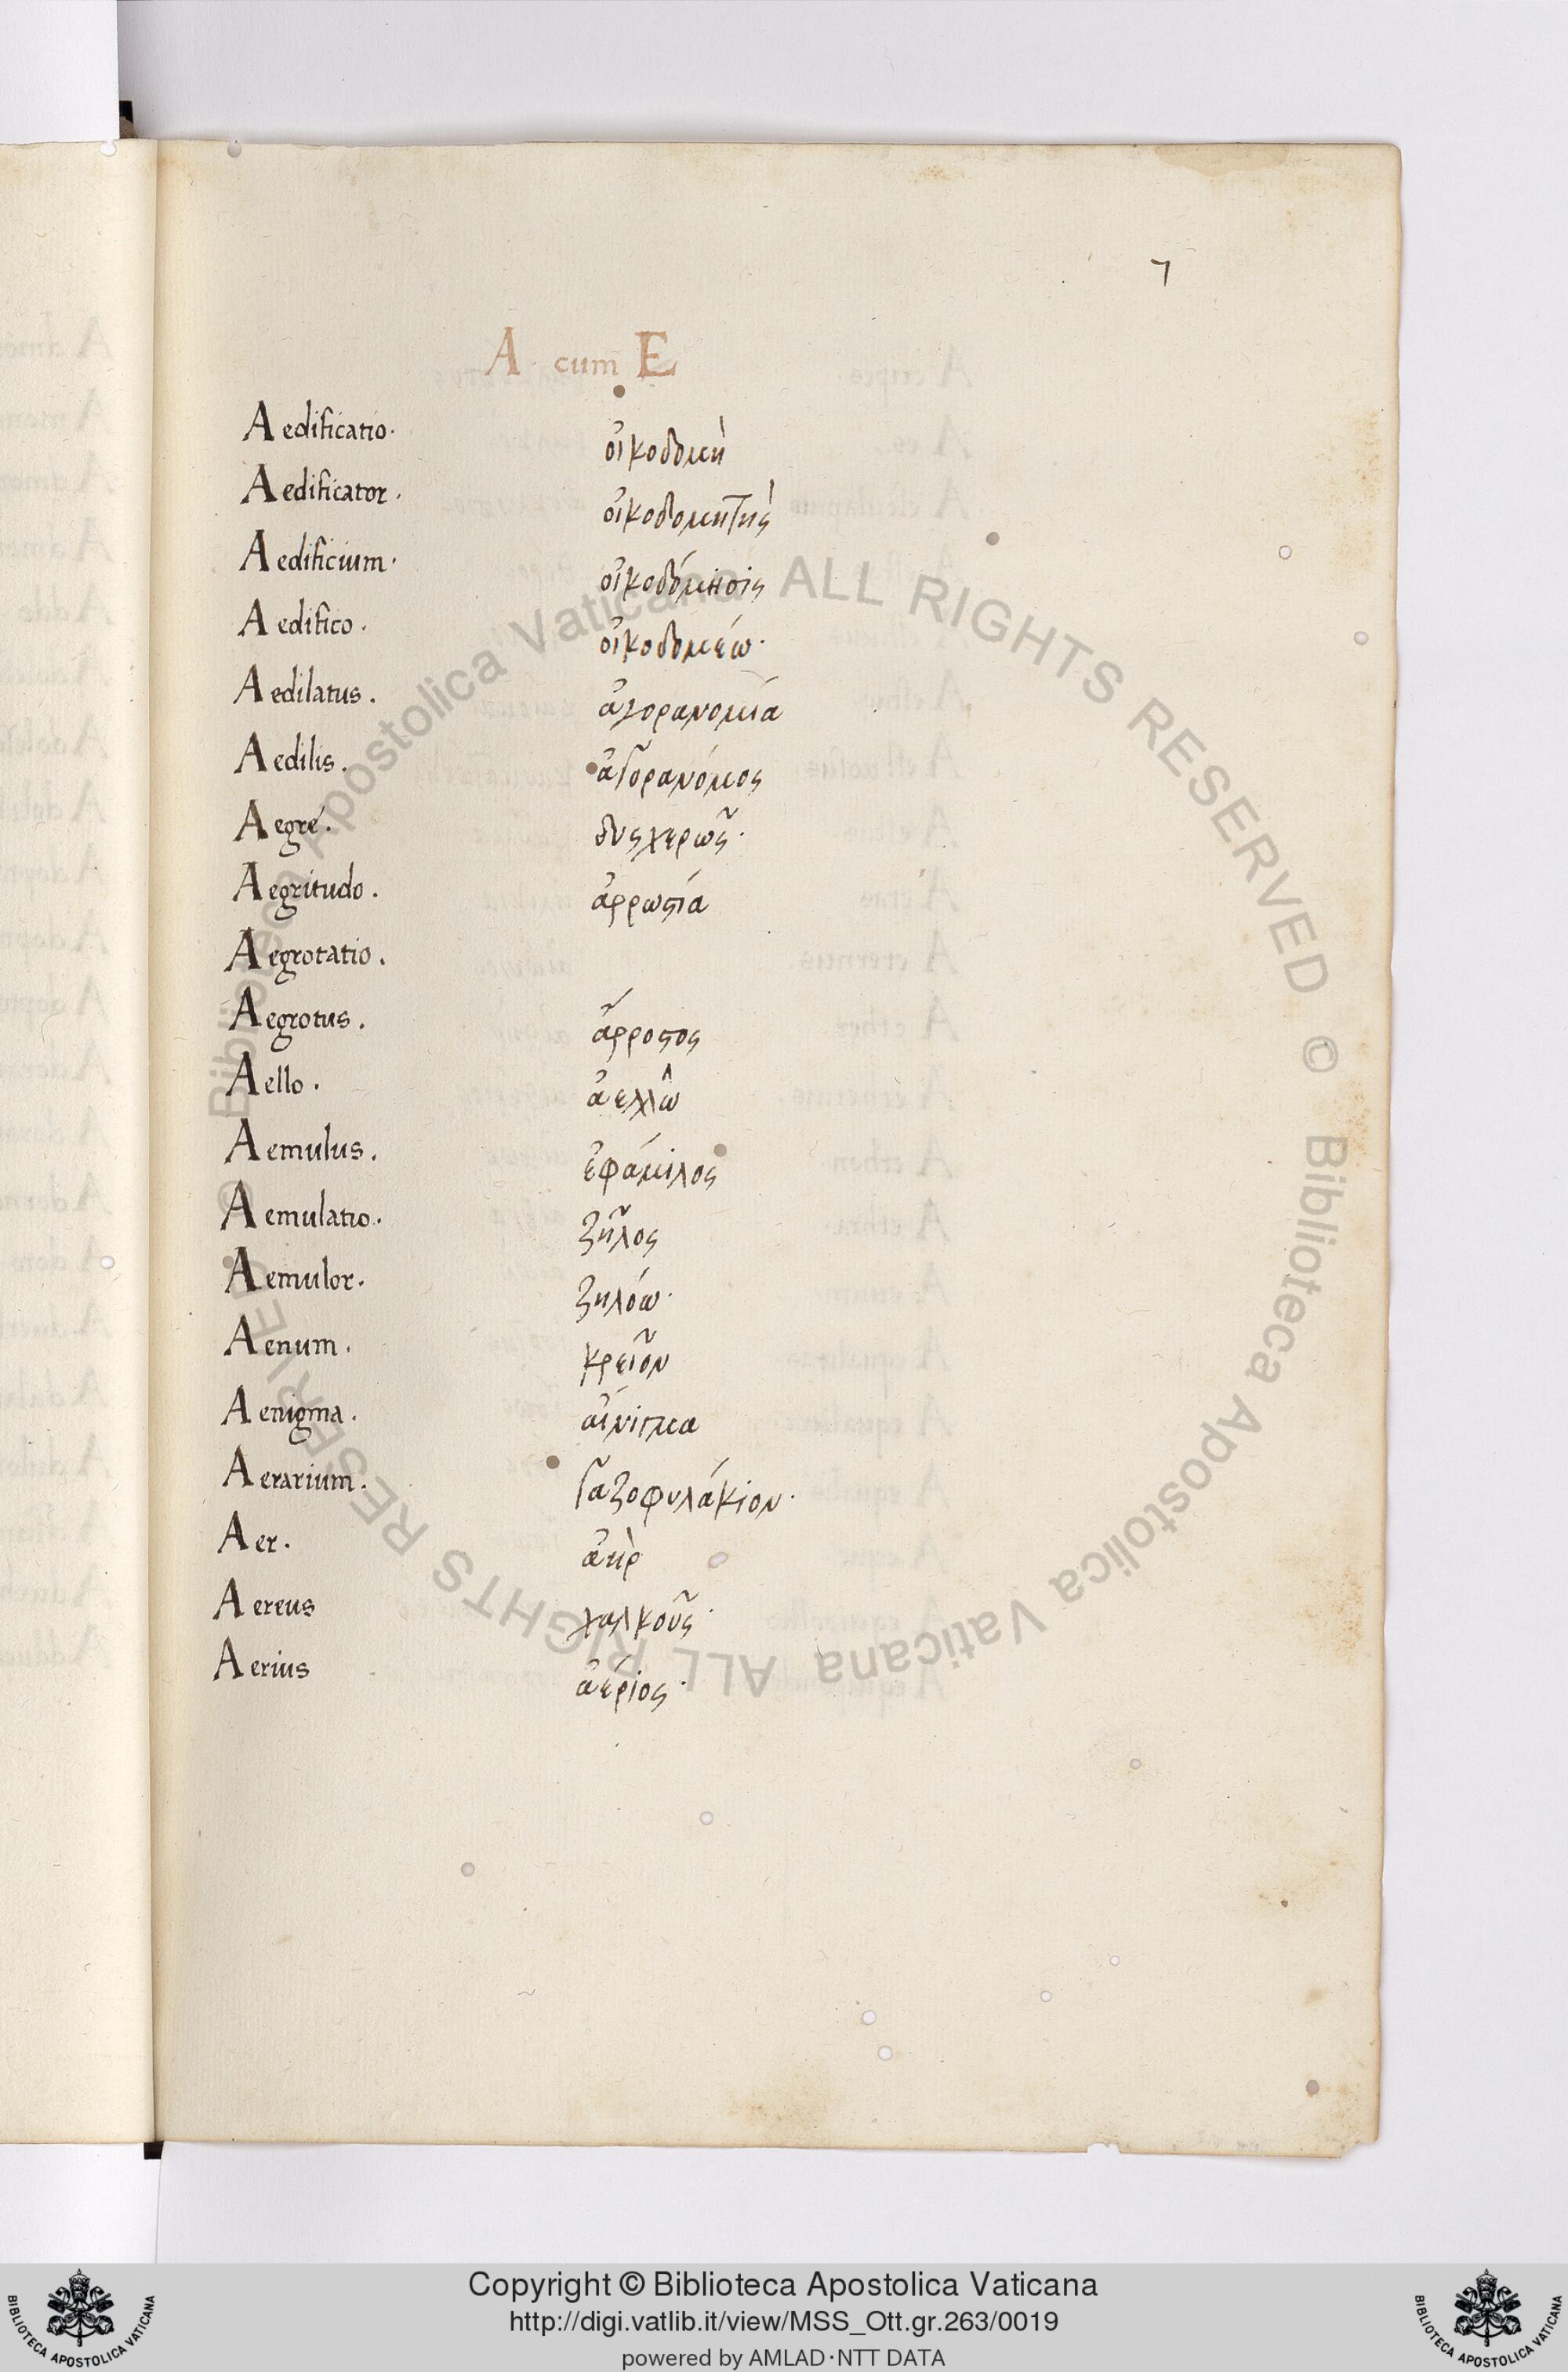 7
A cum E
Aedificatio. οἰκοδομὴ
Aedificator. οἰκοδομητὴς
Aedificium. οἰκοδόμησις
Aedifico. οἰκοδομέω.
Aedilatus. ἀγορανομία
Aedilis. ἀγορανόμος
Aegré. δυσχερῶς.
Aegritudo. ἀρρωστία
Aegrotatio.
Aegrotus. ἄρροστος
Aello. ἀελλὼ
Aemulus. ἐφάμιλος
Aemulatio. ζῆλος
Aemulor. ζηλόω.
Aenum. κρεῖον
Aenigma. αἴνιγμα
Aerarium. γαζοφυλάκιον.
Aer. ἀὴρ
Aereus χαλκοῦς.
Aerius ἀέριος.
© Biblioteca Apostolica Vaticana ALL RIGHTS RESERVED © Biblioteca Apostolica Vaticana ALL RIGHTS RESERVED
Copyright © Biblioteca Apostolica Vaticana
http://digi.vatlib.it/view/MSS_Ott.gr.263/0019
powered by AMLAD·NTT DATA
BIBLIOTECA APOSTOLICA VATICANA
BIBLIOTECA APOSTOLICA VATICANA